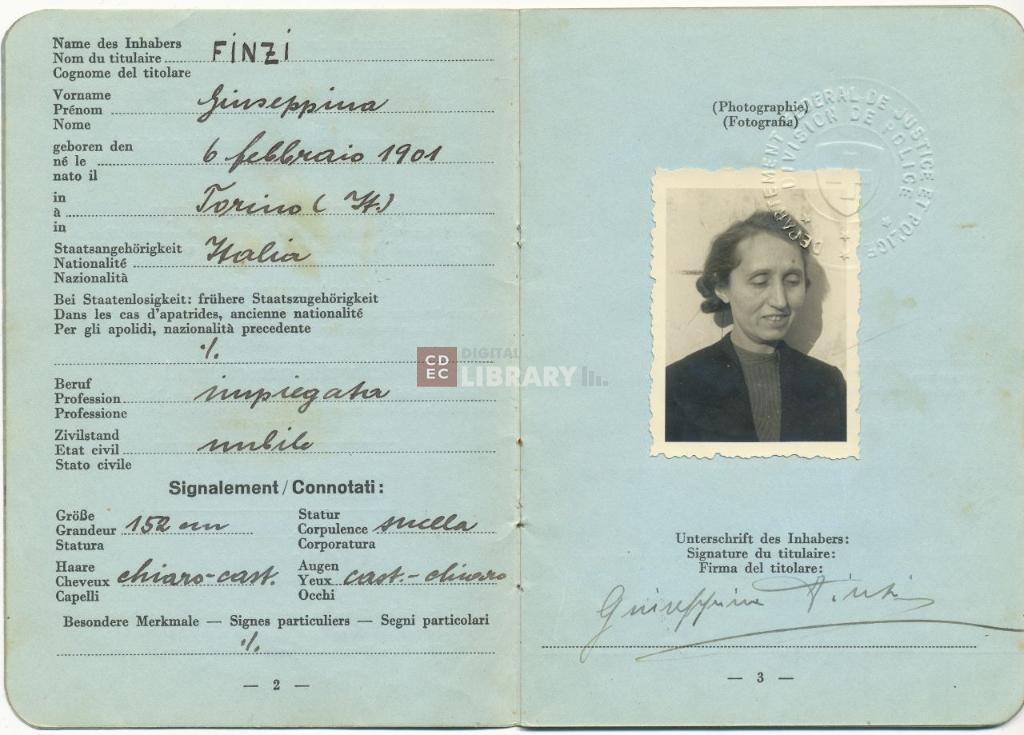 Name des Inhabers
Nom du titulaire FINZI
Cognome del titolare
Vorname
Prénom Giuseppina
Nome
geboren den
né le 6 febbraio 1901
nato il
in
à Torino (It.)
in
Staatsangehörigkeit
Nationalité Italia
Nazionalità
Bei Staatenlosigkeit: frühere Staatszugehörigkeit
Dans les cas d'apatrides, ancienne nationalité
Per gli apolidi, nazionalità precedente
./.
Beruf
Profession impiegata
Professione
Zivilstand
Etat civil nubile
Stato civile
Signalement / Connotati:
Größe
Grandeur 152 cm
Statura
Statur
Corpulence snella
Corporatura
Haare
Cheveux chiaro-cast.
Capelli
Augen
Yeux cast.-chiaro
Occhi
Besondere Merkmale — Signes particuliers — Segni particolari
./.
— 2 —
(Photographie)
(Fotografia)
DEPARTEMENT FEDERAL DE JUSTICE ET POLICE
DIVISION DE POLICE
Unterschrift des Inhabers:
Signature du titulaire:
Firma del titolare:
Giuseppina Finzi
— 3 —
CDEC DIGITAL LIBRARY